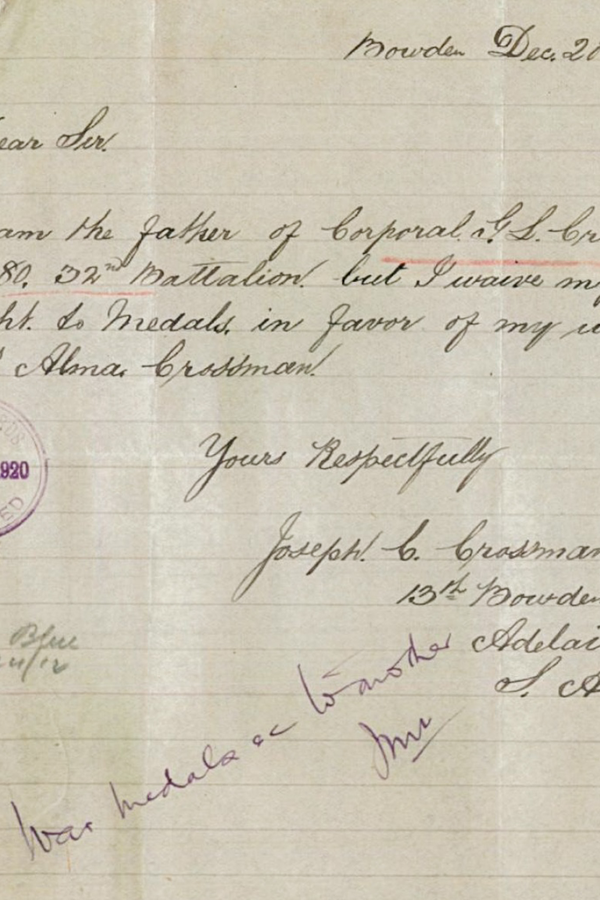 Bowden Dec. 20
ear Sir.
am the father of Corporal. G. L. Cr
80. 32nd Battalion. but I waive my
ht. to Medals. in favor of my w
Alma. Crossman.
920
Yours Respectfully
ED
Joseph. C. Crossman
13th Bowden
Blue
Adelai
11/12
S. A
War medals &c to mother